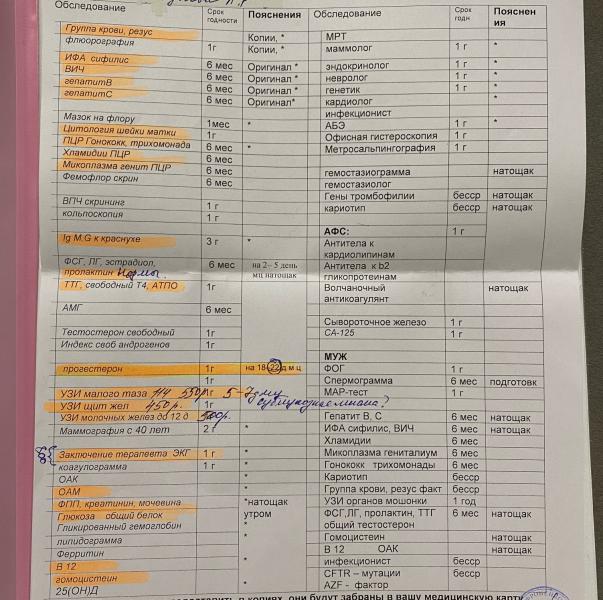 Обследование Срок годности Пояснения Обследование Срок годн Пояснен ия
Группа крови, резус Копии, * МРТ
флюорография 1г Копии, * маммолог 1 г *
ИФА сифилис 6 мес Оригинал * эндокринолог 1 г *
ВИЧ 6 мес Оригинал * невролог 1 г *
гепатитВ 6 мес Оригинал * генетик 1 г *
гепатитС 6 мес Оригинал* кардиолог *
инфекционист
Мазок на флору 1мес * АБЭ 1 г *
Цитология шейки матки 1г Офисная гистероскопия 1 г
ПЦР Гонококк, трихомонада 6 мес * Метросальпингография 1 г
Хламидии ПЦР 6 мес
Микоплазма генит ПЦР 6 мес гемостазиограмма натощак
Фемофлор скрин 6 мес гемостазиолог
Гены тромбофилии бесср натощак
ВПЧ скрининг 1 г кариотип бесср натощак
кольпоскопия 1 г
АФС: 1 г
Ig M,G к краснухе 3 г * Антитела к кардиолипинам
ФСГ, ЛГ, эстрадиол, 6 мес на 2– 5 день Антитела к b2
пролактин нормы. мц натощак гликопротеинам
ТТГ, свободный Т4, АТПО 1г Волчаночный натощак
антикоагулянт
АМГ 6 мес
Сывороточное железо 1 г
Тестостерон свободный 1г СА-125 1 г
Индекс своб андрогенов 1г
МУЖ
прогестерон 1г на 18-22 д м ц ФОГ 1 г
1г Спермограмма 6 мес подготовк
УЗИ малого таза 550р. 1г 5- МАР-тест 1 г
УЗИ щит жел 450р. 1г
УЗИ молочных желез до 12 д 500р. Гепатит В, С 6 мес натощак
Маммография с 40 лет 2 г * ИФА сифилис, ВИЧ 6 мес натощак
Хламидии 6 мес
Заключение терапевта ЭКГ 1 г * Микоплазма гениталиум 6 мес
коагулограмма 1 г * Гонококк трихомонады 6 мес
ОАК * Кариотип бесср
ОАМ * Группа крови, резус факт бесср
ФПП, креатинин, мочевина *натощак УЗИ органов мошонки 1 год
Глюкоза общий белок утром ФСГ,ЛГ, пролактин, ТТГ 6 мес натощак
Гликированный гемоглобин * общий тестостерон
липидограмма * Гомоцистеин натощак
Ферритин В 12 ОАК натощак
В 12 * инфекционист бесср
гомоцистеин CFTR – мутации бесср
25(ОН)Д * AZF - фактор
в копиях, они будут забраны в вашу медицинскую карту